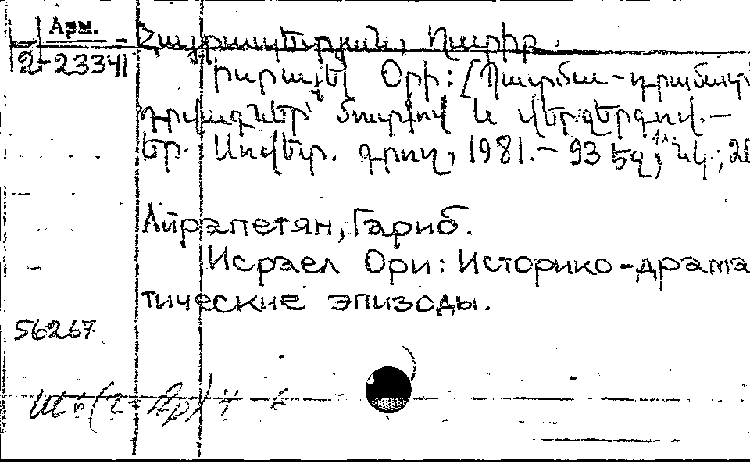 Арм.
2-23341
Հայրապետյան, Ղարիբ.
Իսրայել Օրի: [Պատմա-դրամատ
դրվագներ
եր. Սովետ. գրող, 1981.- 93 էջ, նկ.; 20
Айрапетян, Гариб.
Исраел Ори: Историко-драма
тические эпизоды.
56267